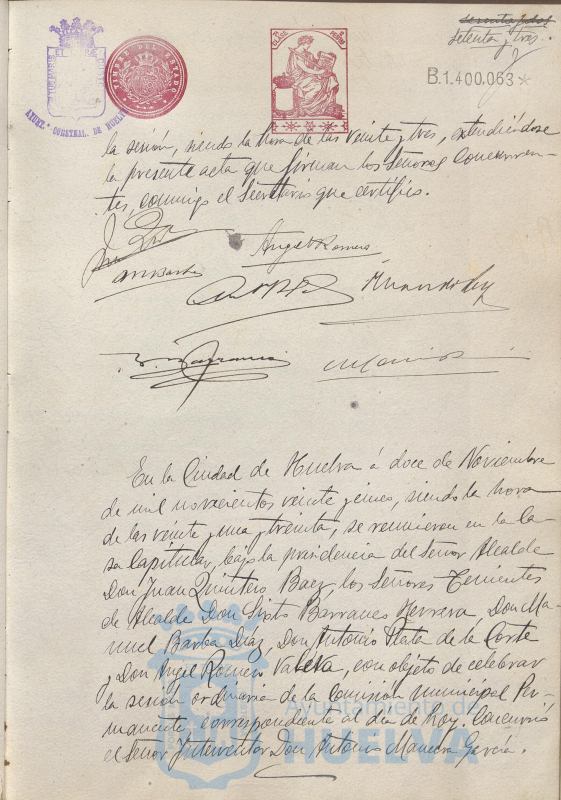 setenta y dos
setenta y tres.
TIMBRE DEL ESTADO
B.1.400.063*
AYUNT.º CONSTNAL. DE HUELVA
la sesión, siendo la hora de las veinte y tres, extendiéndose
la presente acta que firman los Señores concurren-
tes, conmigo el Secretario que certifico.
Angel Romero
M Barba
En la Ciudad de Huelva á doce de Noviembre
de mil novecientos veinte y cinco, siendo la hora
de las veinte y una y treinta, se reunieron en la Ca-
sa Capitular, bajo la presidencia del Señor Alcalde
Don Juan Quintero Baez, los Señores Tenientes
de Alcalde Don Sixto Barranco Herrera, Don Ma-
nuel Barba Diaz, Don Antonio Plata de la Corte
y Don Angel Romero Valeva, con objeto de celebrar
la sesión ordinaria de la Comisión municipal Per-
manente, correspondiente al día de hoy. Concurrió
el Señor Interventor Don Antonio Mancera García.
Ayuntamiento de
HUELVA